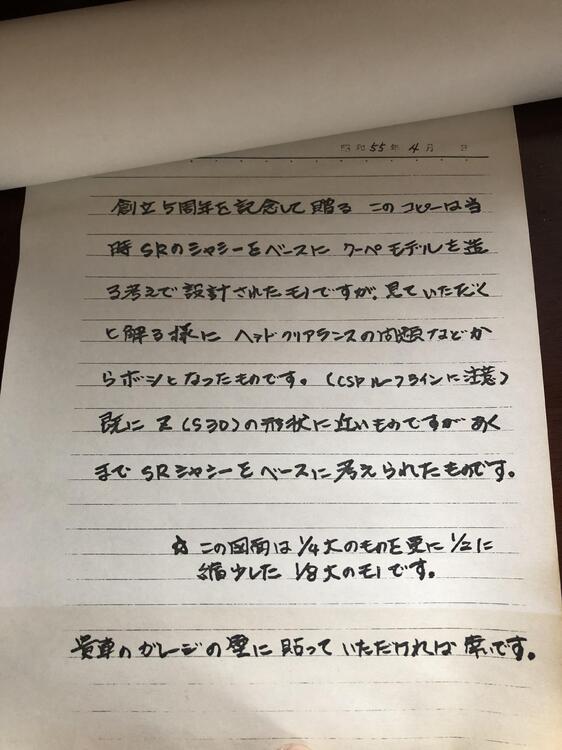 昭和55年4月 日
創立5周年を記念して贈る このコピーは当
時SRのシャシーをベースに クーペモデルを造
る考えで設計されたモノですが、見ていただく
と解る様に ヘッドクリアランスの問題などか
らボシとなったものです。(CSPルーフラインに注意)
既に Z(S30)の形状に近いものですがあく
までSRシャシーをベースに考えられたものです。
☆ この図面は1/4大のものを更に1/2に
縮少した 1/8大のモノです。
貴車のガレージの壁に貼っていただければ幸いです。